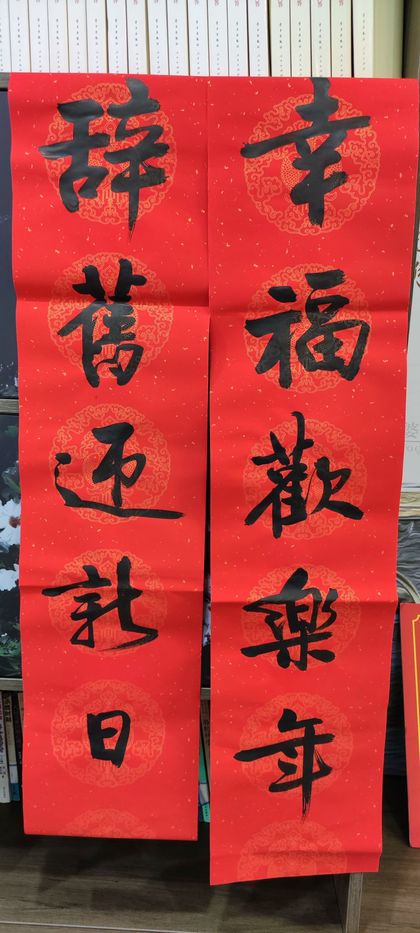 幸福歡樂年
辞舊迎新日